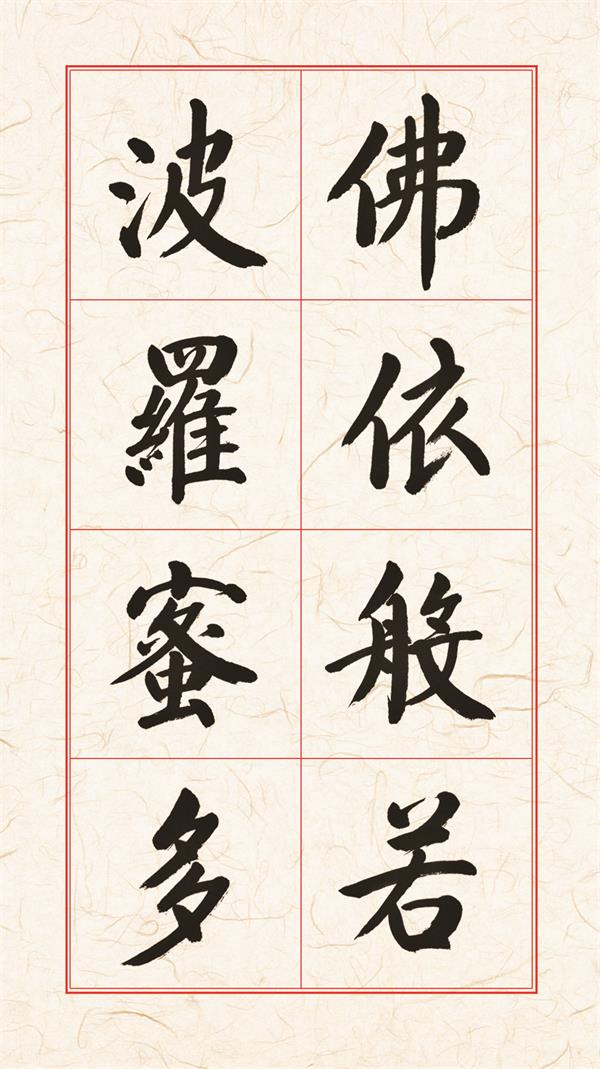 佛依般若
波羅蜜多